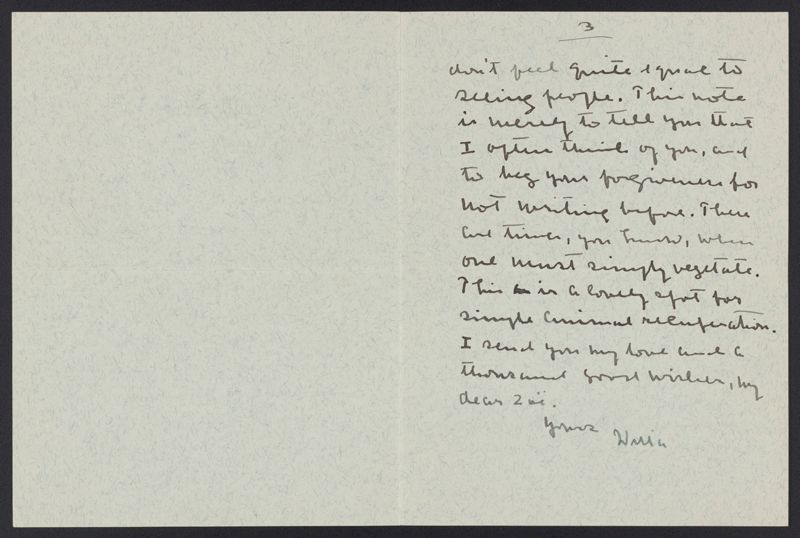 3
don't feel quite equal to
seeing people. This note
is merely to tell you that
I often think of you, and
to beg your forgiveness for
not writing before. There
are times, you know, when
one must simply vegetate.
This is a lovely spot for
simple animal recuperation.
I send you my love and a
thousand good wishes, my
dear Zoë.
Yours
Willa